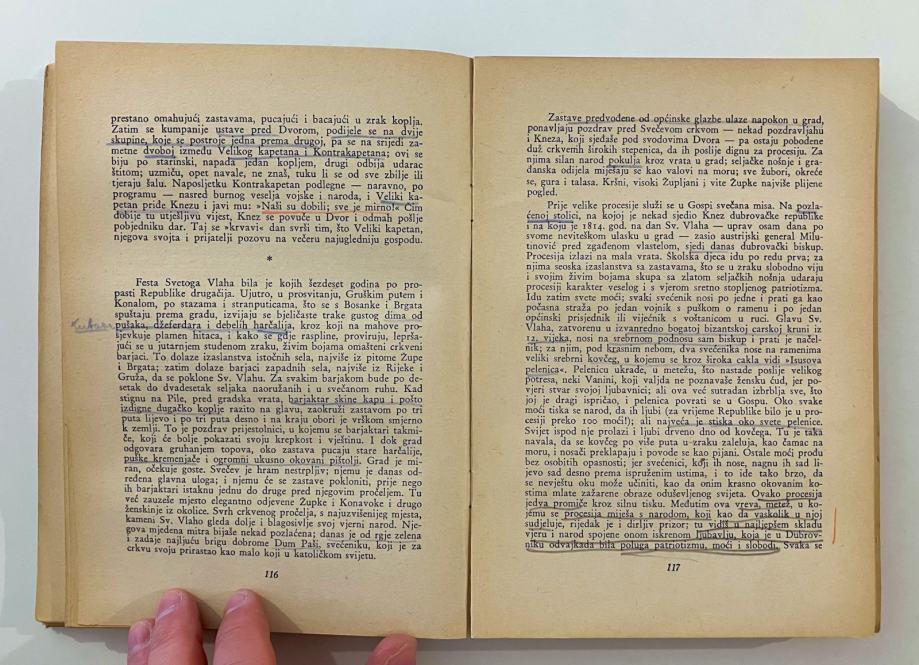 prestano omahujući zastavama, pucajući i bacajući u zrak koplja.
Zatim se kumpanije ustave pred Dvorom, podijele se na dvije
skupine, koje se postroje jedna prema drugoj, pa se na srijedi za-
metne dvoboj između Velikog kapetana i Kontrakapetana; ovi se
biju po starinski, napada jedan kopljem, drugi odbija udarac
štitom; uzmiču, opet navale, ne znaš, tuku li se od sve zbilje ili
tjeraju šalu. Naposljetku Kontrakapetan podlegne — naravno, po
programu — nasred burnog veselja vojske i naroda, i Veliki ka-
petan pride Knezu i javi mu: »Naši su dobili; sve je mirno!« Čim
dobije tu utješljivu vijest, Knez se povuče u Dvor i odmah pošlje
pobjedniku dar. Taj se »krvavi« dan svrši tim, što Veliki kapetan,
njegova svojta i prijatelji pozovu na večeru najugledniju gospodu.
*
Festa Svetoga Vlaha bila je kojih šezdeset godina po pro-
pasti Republike drugačija. Ujutro, u prosvitanju, Gruškim putem i
Konalom, po stazama i stranputicama, što se s Bosanke i Brgata
spuštaju prema gradu, izvijaju se bjeličaste trake gustog dima od
pušaka, džeferdara i debelih harčalija, kroz koji na mahove pro-
sjevkuje plamen hitaca, i kako se gdje raspline, proviruju, lepršа-
jući se u jutarnjem studenom zraku, živim bojama omašteni crkveni
barjaci. To dolaze izaslanstva istočnih sela, najviše iz pitome Župe
i Brgata; zatim dolaze barjaci zapadnih sela, najviše iz Rijeke i
Gruža, da se poklone Sv. Vlahu. Za svakim barjakom bude po de-
setak do dvadesetak seljaka naoružanih i u svečanom ruhu. Kad
stignu na Pile, pred gradska vrata, barjaktar skine kapu i pošto
izdigne dugačko koplje razito na glavu, zaokruži zastavom po tri
puta lijevo i po tri puta desno i na kraju obori je vrškom smjerno
k zemlji. To je pozdrav prijestolnici, u kojemu se barjaktari takmi-
če, koji će bolje pokazati svoju krepkost i vještinu. I dok grad
odgovara gruhanjem topova, oko zastava pucaju stare harčalije,
puške kremenjače i ogromni ukusno okovani pištolji. Grad je mi-
ran, očekuje goste. Svečev je hram nestrpljiv; njemu je danas od-
ređena glavna uloga; i njemu će se zastave pokloniti, prije nego
ih barjaktari istaknu jednu do druge pred njegovim pročeljem. Tu
već zauzeše mjesto elegantno odjevene Župke i Konavoke i drugo
ženskinje iz okolice. Svrh crkvenog pročelja, s najuzvišenijeg mjesta,
kameni Sv. Vlaho gleda dolje i blagosivlje svoj vjerni narod. Nje-
gova mjedena mitra bijaše nekad pozlaćena; danas je od rgje zelena
i zadaje najljuću brigu dobrome Dum Paši, svećeniku, koji je za
crkvu svoju prirastao kao malo koji u katoličkom svijetu.
116
Zastave predvođene od općinske glazbe ulaze napokon u grad,
ponavljaju pozdrav pred Svečevom crkvom — nekad pozdravljahu
i Kneza, koji sjeđaše pod svodovima Dvora — pa ostaju pobođene
duž crkvenih širokih stepenica, da ih poslije dignu za procesiju. Za
njima silan narod pokulja kroz vrata u grad; seljačke nošnje i gra-
danska odijela miješaju se kao valovi na moru; sve žubori, okreće
se, gura i talasa. Kršni, visoki Župljani i vite Župke najviše plijene
pogled.
Prije velike procesije služi se u Gospi svečana misa. Na pozla-
ćenoj stolici, na kojoj je nekad sjedio Knez dubrovačke republike
i na koju je 1814. god. na dan Sv. Vlaha — uprav osam dana po
svome neviteškom ulasku u grad — zasio austrijski general Milu-
tinović pred zgađenom vlastelom, sjedi danas dubrovački biskup.
Procesija izlazi na mala vrata. Školska djeca idu po redu prva; za
njima seoska izaslanstva sa zastavama, što se u zraku slobodno viju
i svojim živim bojama skupa sa zlatom seljačkih nošnja udaraju
procesiji karakter veselog i s vjerom sretno stopljenog patriotizma.
Idu zatim svete moći; svaki svećenik nosi po jedne i prati ga kao
počasna straža po jedan vojnik s puškom o ramenu i po jedan
općinski prisjednik ili vijećnik s voštanicom u ruci. Glavu Sv.
Vlaha, zatvorenu u izvanredno bogatoj bizantskoj carskoj kruni iz
12. vijeka, nosi na srebrnom podnosu sam biskup i prati je načel-
nik; za njim, pod krasnim nebom, dva svećenika nose na ramenima
veliki srebrni kovčeg, u kojemu se kroz široka cakla vidi »Isusova
pelenica«. Pelenicu ukrade, u metežu, što nastade poslije velikog
potresa, neki Vanini, koji valjda ne poznavaše žensku ćud, jer po-
vjeri stvar svojoj ljubavnici; ali ova već sutradan izbrblja sve, što
joj je dragi ispričao, i pelenica povrati se u Gospu. Oko svake
moći tiska se narod, da ih ljubi (za vrijeme Republike bilo je u pro-
cesiji preko 100 moći!); ali najveća je stiska oko svete pelenice.
Svijet ispod nje prolazi i ljubi drveno dno od kovčega. Tu je taka
navala, da se kovčeg po više puta u zraku zaleluja, kao čamac na
moru, i nosači preklapaju i povode se kao pijani. Ostale moći prođu
bez osobitih opasnosti; jer svećenici, koji ih nose, nagnu ih sad li-
jevo sad desno prema ispruženim ustima, i to ide tako brzo, da
se nevještu oku može učiniti, kao da onim krasno okovanim ko-
stima mlate zažarene obraze oduševljenog svijeta. Ovako procesija
jedva promiče kroz silnu tisku. Međutim ova vreva, metež, u ko-
jemu se procesija miješa s narodom, koji kao da vaskolik u njoj
sudjeluje, rijedak je i dirljiv prizor; tu vidiš u najljepšem skladu
vjeru i narod spojene onom iskrenom ljubavlju, koja je u Dubrov-
niku odvajkada bila poluga patriotizmu, moći i slobodi. Svaka se
117